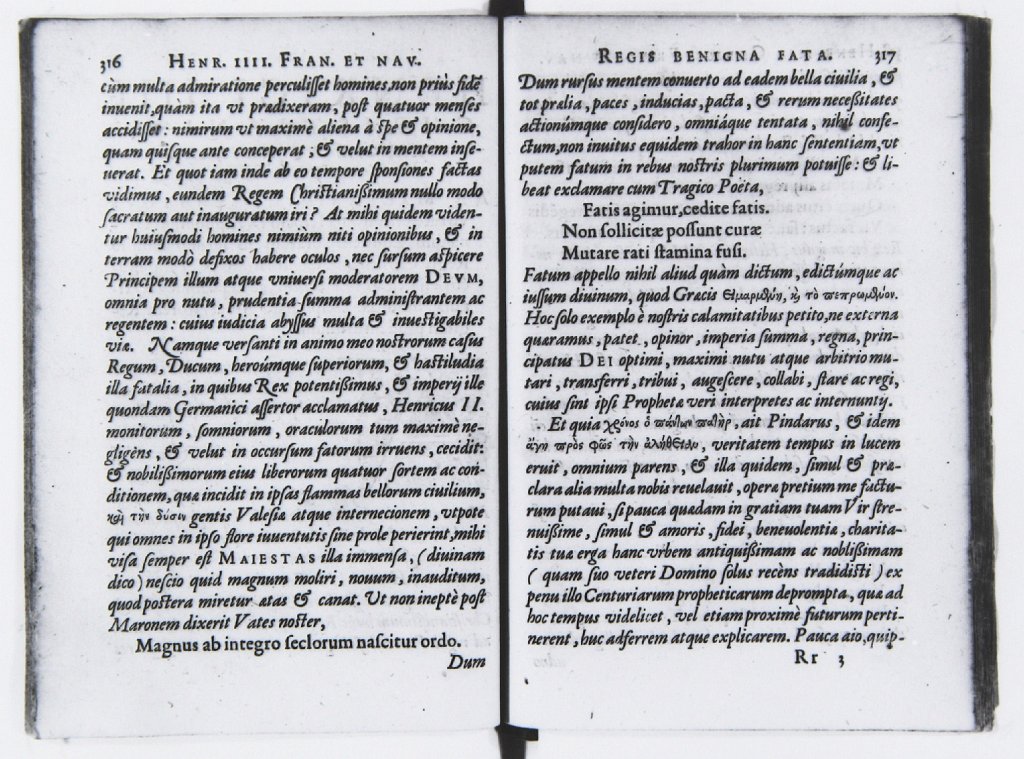 316 HENR. IIII. FRAN. ET NAV.
cùm multa admiratione perculisset homines, non priùs fidẽ
inuenit, quàm ita vt prædixeram, post quatuor menses
accidisset: nimirum vt maximè aliena à spe & opinione,
quam quisque ante conceperat, & velut in mentem inse-
uerat. Et quot iam inde ab eo tempore sponsiones factas
vidimus, eundem Regem Christianissimum nullo modo
sacratum aut inauguratum iri? At mihi quidem viden-
tur huiusmodi homines nimiùm niti opinionibus, & in
terram modò defixos habere oculos, nec sursum aspicere
Principem illum atque vniuersi moderatorem DEVM,
omnia pro nutu, prudentia summa administrantem ac
regentem: cuius iudicia abyssus multa & inuestigabiles
viæ. Namque versanti in animo meo nostrorum casus
Regum, Ducum, heroúmque superiorum, & hastiludia
illa fatalia, in quibus Rex potentissimus, & imperij ille
quondam Germanici assertor acclamatus, Henricus II.
monitorum, somniorum, oraculorum tum maximè ne-
gligẽns, & velut in occursum fatorum irruens, cecidit:
& nobilissimorum eius liberorum quatuor sortem ac con-
ditionem, quæ incidit in ipsas flammas bellorum ciuilium,
καὶ τὴν δύσιν gentis Valesiæ atque internecionem, vtpote
qui omnes in ipso flore iuuentutis sine prole perierint, mihi
visa semper est MAIESTAS illa immensa, (diuinam
dico) nescio quid magnum moliri, nouum, inauditum,
quod postera miretur ætas & canat. Ut non ineptè post
Maronem dixerit Vates noster,
Magnus ab integro seclorum nascitur ordo.
Dum
REGIS BENIGNA FATA. 317
Dum rursus mentem conuerto ad eadem bella ciuilia, &
tot prælia, paces, inducias, pacta, & rerum necessitates
actionúmque considero, omniáque tentata, nihil confe-
ctum, non inuitus equidem trahor in hanc sententiam, vt
putem fatum in rebus nostris plurimum potuisse: & li-
beat exclamare cum Tragico Poëta,
Fatis agimur, cedite fatis.
Non sollicitæ possunt curæ
Mutare rati stamina fusi.
Fatum appello nihil aliud quàm dictum, edictúmque ac
iussum diuinum, quod Græcis εἱμαρμένη, ἢ τὸ πεπρωμένον.
Hoc solo exemplo è nostris calamitatibus petito, ne externa
quæramus, patet, opinor, imperia summa, regna, prin-
cipatus DEI optimi, maximi nutu atque arbitrio mu-
tari, transferri, tribui, augescere, collabi, stare ac regi,
cuius sint ipsi Prophetæ veri interpretes ac internuntij.
Et quia χρόνος ὁ πάντων πατὴρ, ait Pindarus, & idem
ἄγει πρὸς φῶς τὴν ἀλήθειαν, veritatem tempus in lucem
eruit, omnium parens, & illa quidem, simul & præ-
clara alia multa nobis reuelauit, operæ pretium me factu-
rum putaui, si pauca quædam in gratiam tuam Vir stre-
nuissime, simul & amoris, fidei, beneuolentiæ, charita-
tis tuæ erga hanc vrbem antiquissimam ac noblissimam
(quam suo veteri Domino solus recèns tradidisti) ex
penu illo Centuriarum propheticarum deprompta, quæ ad
hoc tempus videlicet, vel etiam proximè futurum perti-
nerent, huc adferrem atque explicarem. Pauca aio, quip-
Rr 3